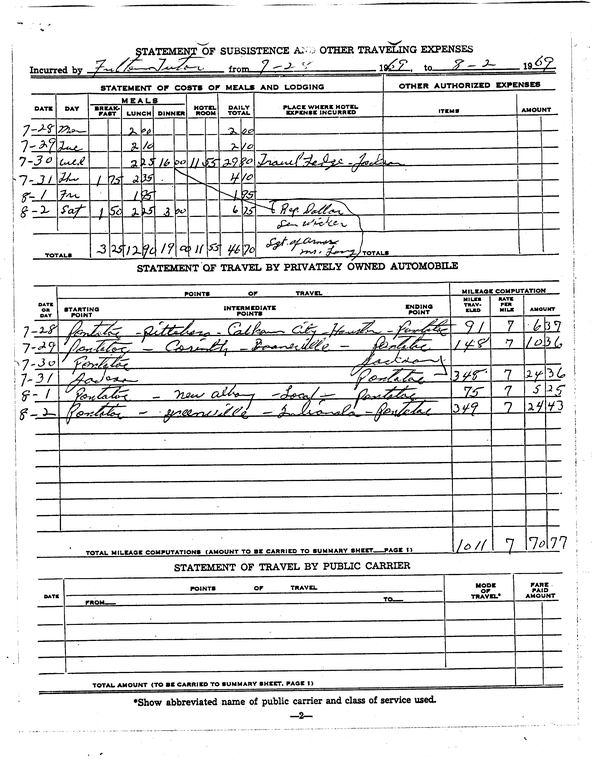 STATEMENT OF SUBSISTENCE AND OTHER TRAVELING EXPENSES
Incurred by Fulton Tutor from 7-28 1969, to 8-2 1969
STATEMENT OF COSTS OF MEALS AND LODGING OTHER AUTHORIZED EXPENSES
DATE DAY MEALS BREAK-FAST LUNCH DINNER HOTEL ROOM DAILY TOTAL PLACE WHERE HOTEL EXPENSE INCURRED ITEMS AMOUNT
7-28 Mon 2 00 2 00
7-29 Tue 2 10 2 10
7-30 Wed 2 25 16 00 11 55 29 80 Travel Lodge - Jackson
7-31 Thu 1 75 2 35 4 10
8-1 Fri 1 95 1 95
8-2 Sat 1 50 2 25 3 00 6 75 Rep. Dollar
Sen Wicker
Sgt. of Arms
Mr. Long
TOTALS 3 25 12 90 19 00 11 55 46 70 TOTALS
STATEMENT OF TRAVEL BY PRIVATELY OWNED AUTOMOBILE
DATE OR DAY POINTS OF TRAVEL MILEAGE COMPUTATION
STARTING POINT INTERMEDIATE POINTS ENDING POINT MILES TRAV-ELED RATE PER MILE AMOUNT
7-28 Pontotoc - Pittsboro - Calhoun City - Houston - Pontotoc 91 7 6 37
7-29 Pontotoc - Corinth - Booneville - Pontotoc 148 7 10 36
7-30 Pontotoc Jackson
7-31 Jackson Pontotoc 348 7 24 36
8-1 Pontotoc - New Albany - Local - Pontotoc 75 7 5 25
8-2 Pontotoc - Greenville - Indianola - Pontotoc 349 7 24 43
TOTAL MILEAGE COMPUTATIONS (AMOUNT TO BE CARRIED TO SUMMARY SHEET—PAGE 1) 1011 7 70 77
STATEMENT OF TRAVEL BY PUBLIC CARRIER
DATE POINTS OF TRAVEL MODE OF TRAVEL* FARE PAID AMOUNT
FROM— TO—
TOTAL AMOUNT (TO BE CARRIED TO SUMMARY SHEET, PAGE 1)
*Show abbreviated name of public carrier and class of service used.
—2—